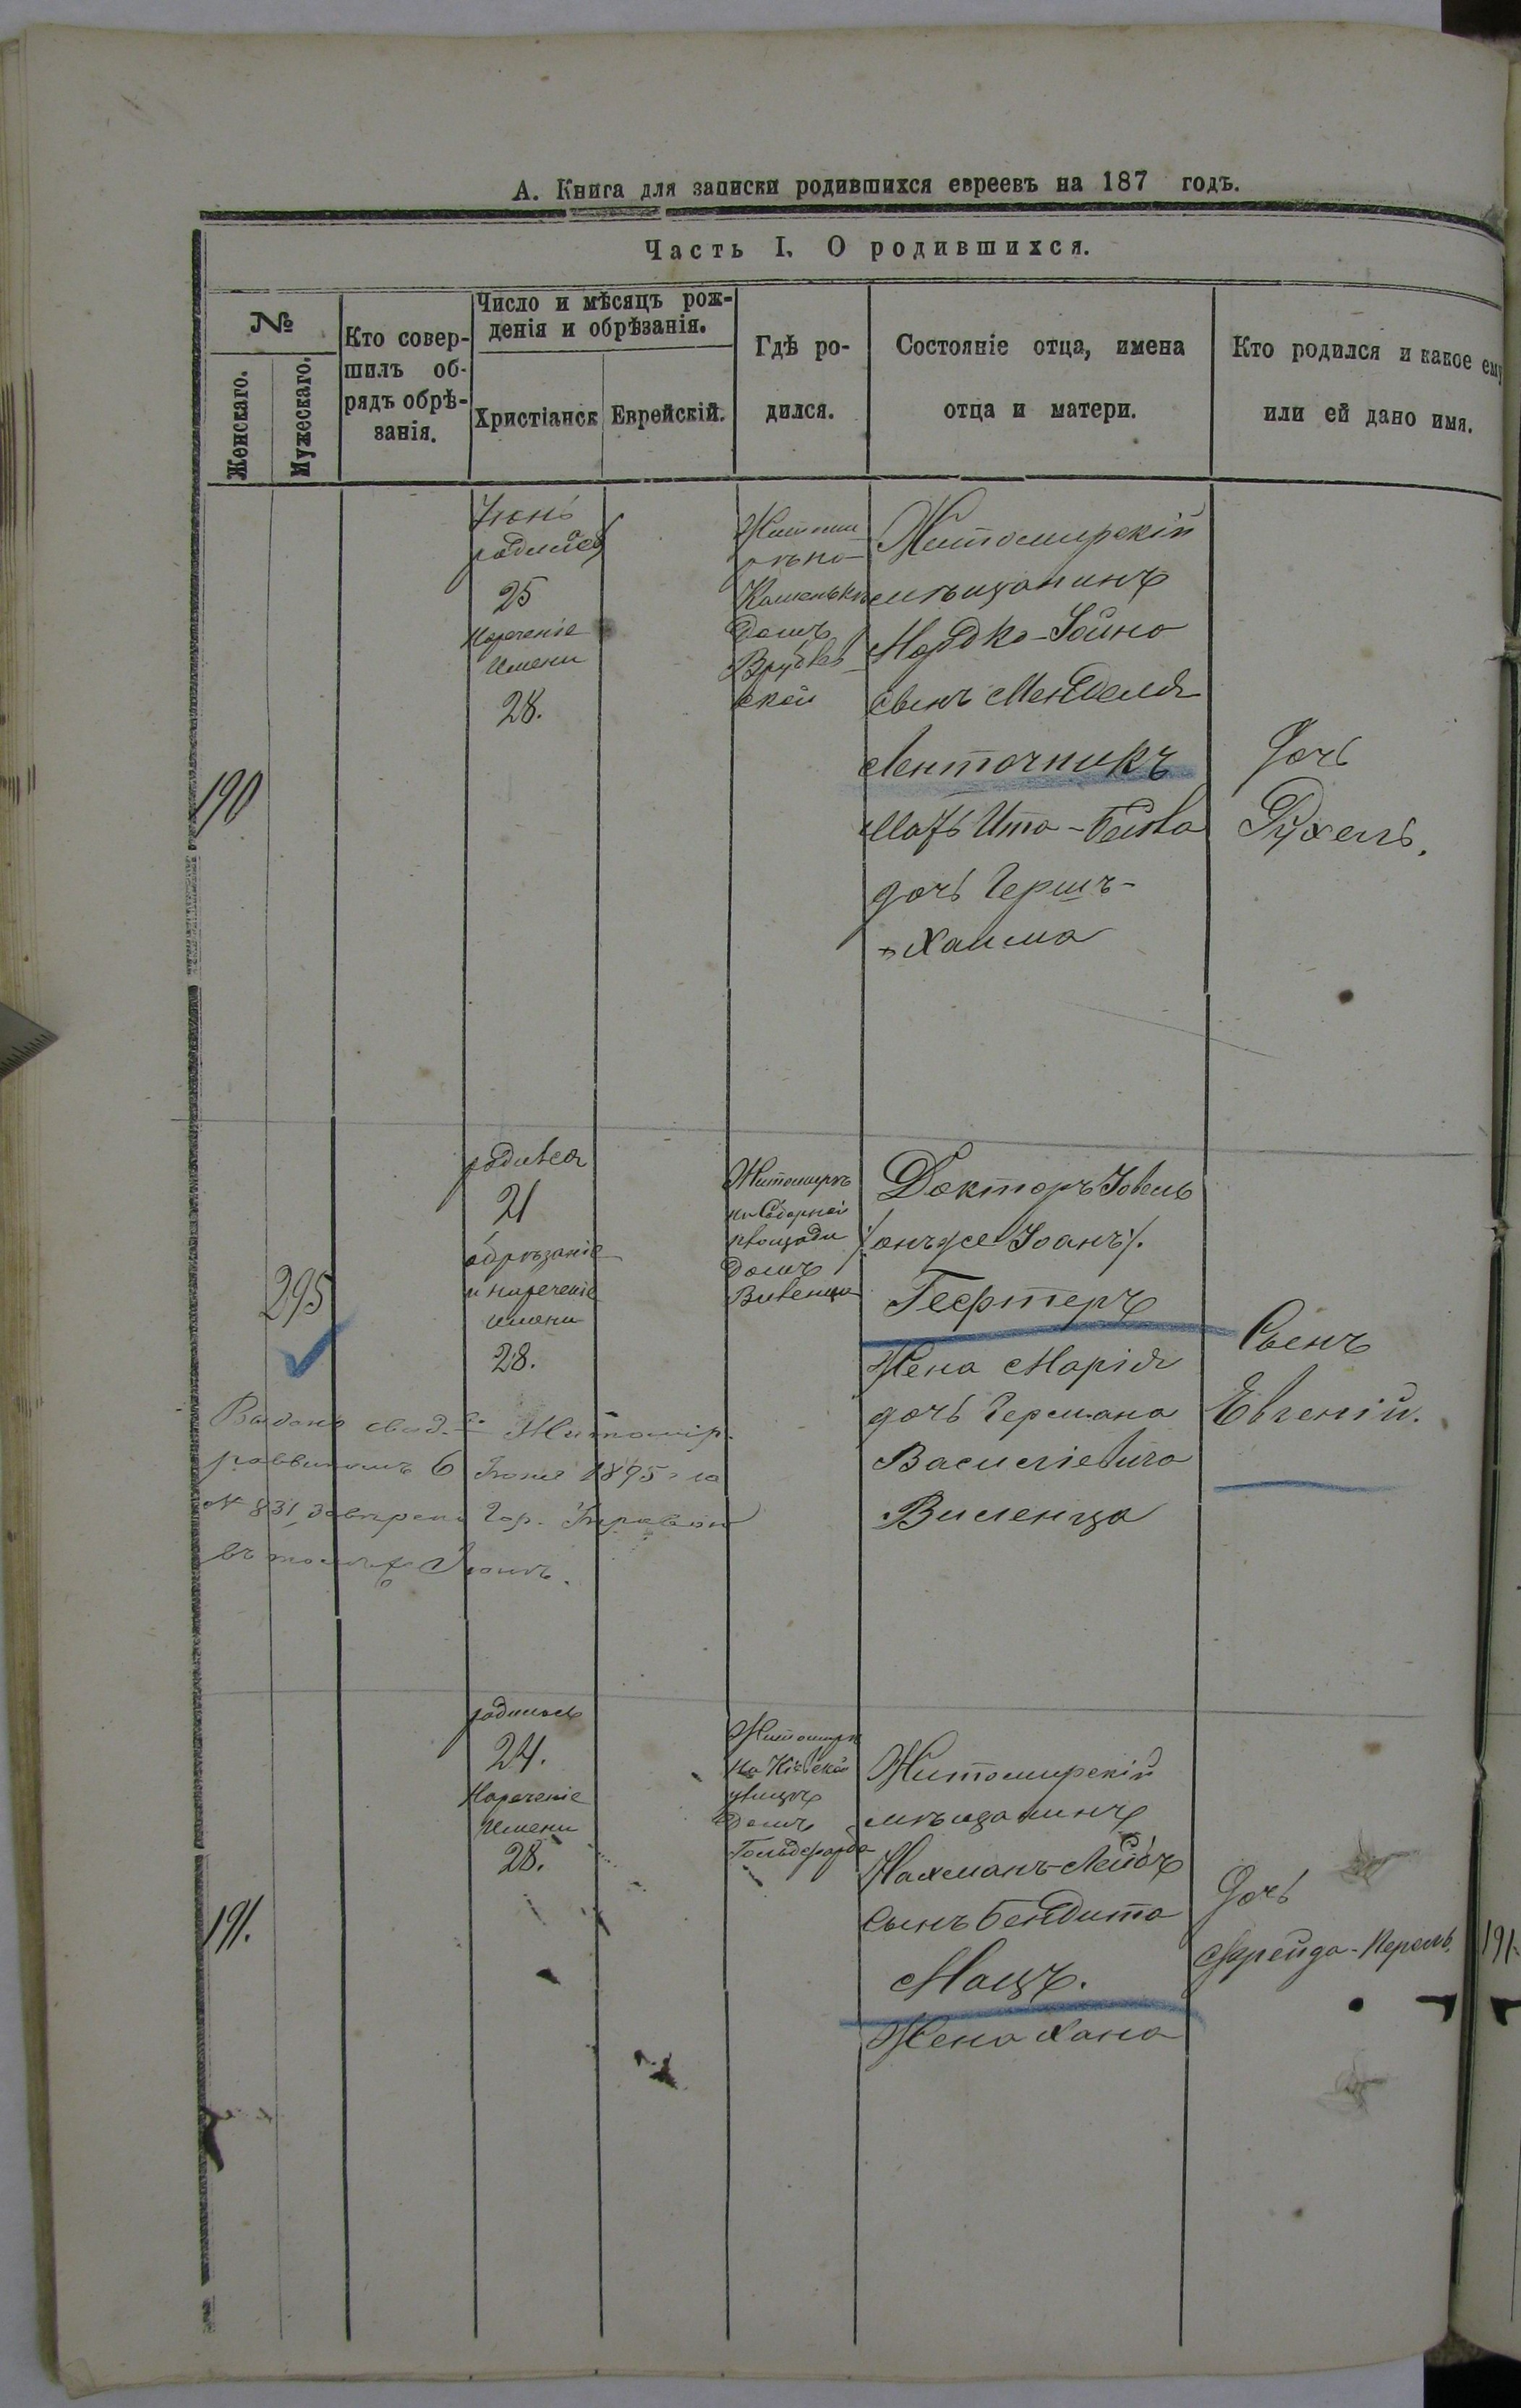 А. Книга для записки родившихся евреевъ на 187 годъ.
Часть I. О родившихся.
№
Женскаго.
Мужескаго.
Кто совер-
шилъ об-
рядъ обрѣ-
занія.
Число и мѣсяцъ рож-
денія и обрѣзанія.
Христіанск
Еврейскій.
Гдѣ ро-
дился.
Состояніе отца, имена
отца и матери.
Кто родился и какое ему
или ей дано имя.
190
Іюнь
родилась
25
Нареченіе
Имени
28.
Домъ
Житомирскій
мѣщанинъ
Мордко-Іойно
сынъ Менделя
Ленточникъ
Мать Ита-Бейла
дочь Гершъ-
Хаима
Дочь
Рухель.
295
родился
21
обрѣзаніе
и нареченіе
имени
28.
Житомиръ
на Соборной
площади
домъ
Виленца
Докторъ Іовель
/онъ же Іоанъ/.
Гефтеръ
Жена Марія
дочь Германа
Василіевича
Виленца
Сынъ
Евгеній.
Выдано свид. Житомір.
раввиномъ 6 Іюня 1895 г за
№ 831, завѣрено Гор. Управою
въ томъ же Іюнѣ.
191.
родилась
24.
Нареченіе
Имени
28.
Житомиръ
на Кіевской
улицѣ
домъ
Гольдфарба
Житомирскій
мѣщанинъ
Нахманъ-Лейбъ
Сынъ Бендита
Мацъ.
Жена Хана
Дочь
Фрейда-Перель.
191.